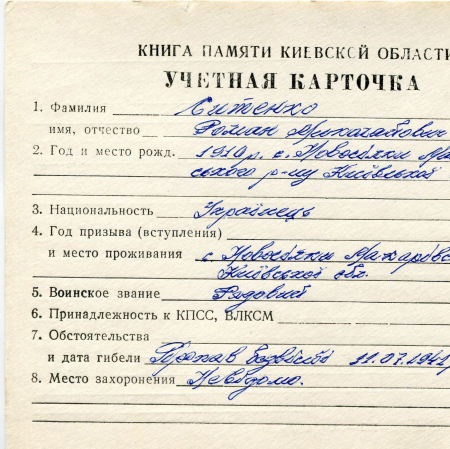 КНИГА ПАМЯТИ КИЕВСКОЙ ОБЛАСТИ
УЧЕТНАЯ КАРТОЧКА
1. Фамилия Ситенко
имя, отчество Роман
2. Год и место рожд. 1910 р. с. Новосілки Ма
ського р-ну Київської
3. Национальность Українець
4. Год призыва (вступления)
и место проживания с. Новосілки Макарівс
Київської обл.
5. Воинское звание Рядовий
6. Принадлежность к КПСС, ВЛКСМ
7. Обстоятельства
и дата гибели Пропав безвісті 11.07.1941
8. Место захоронения Невідомо.